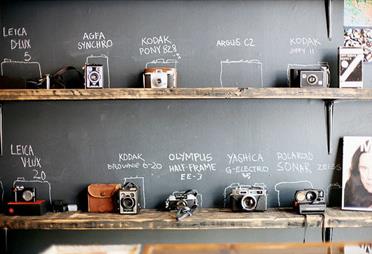 LEICA
D-LUX
5
AGFA
SYNCHRO
KODAK
PONY 828
ARGUS C2
KODAK
JIFFY II
LEICA
V-LUX
20
KODAK
BROWNIE 6-20
OLYMPUS
HALF-FRAME
EE-3
YASHICA
G-ELECTRO
POLAROID
SONAR
ZEISS